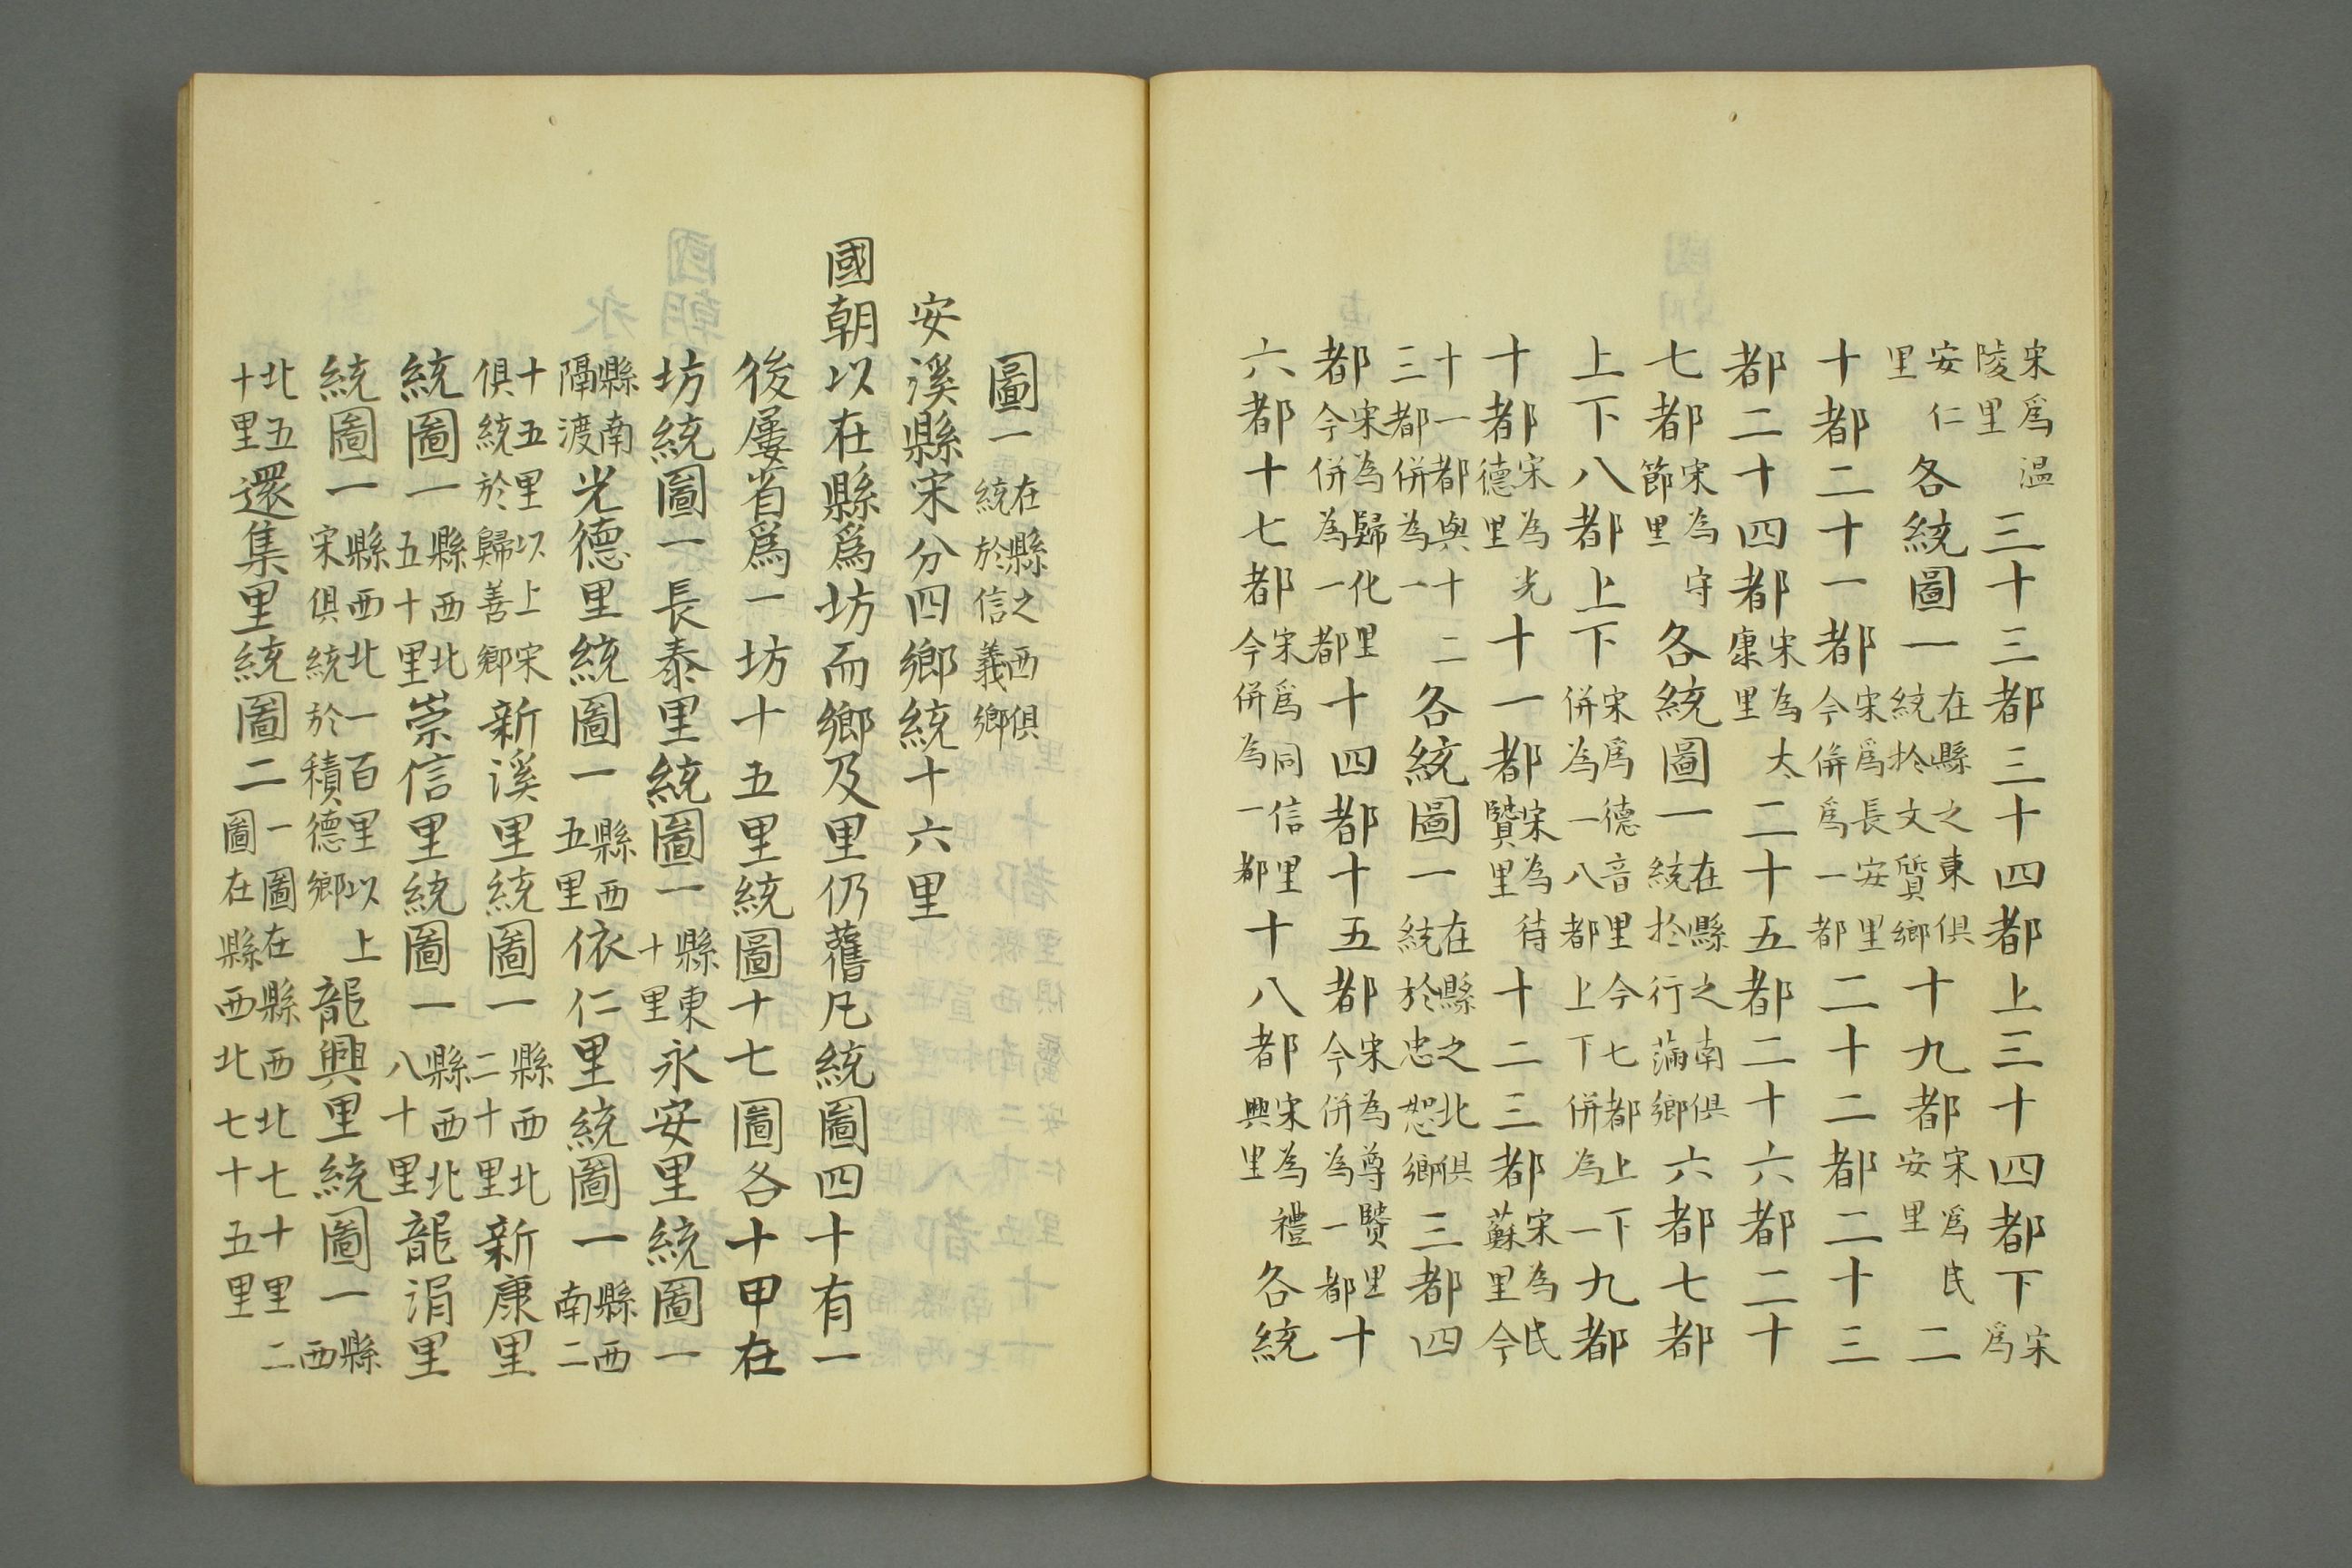 宋爲溫陵里三十三都三十四都上三十四都下宋爲
安仁里各統圖一在縣之東俱統於文質鄉十九都宋爲民安里二
十都二十一都宋爲長安里今併爲一都二十二都二十三
都二十四都宋為太康里二十五都二十六都二十
七都宋為守節里各統圖一在縣之南俱統於行滿鄉六都七都
上下八都上下宋爲德音里今七都上下併為一八都上下併為一九都
十都宋為光德里十一都宋為待賢里十二三都宋為民蘇里今
十一都與十二三都併為一各統圖一在縣之北俱統於忠恕鄉三都四
都宋為歸化里今併為一都十四都十五都宋為尊賢里今併為一都十
六都十七都宋爲同信里今併為一都十八都宋為禮興里各統
圖一在縣之西俱統於信義鄉
安溪縣宋分四鄉統十六里
國朝以在縣爲坊而鄉及里仍舊凡統圖四十有一
後屢省爲一坊十五里統圖十七圖各十甲在
坊統圖一長泰里統圖一縣東十里永安里統圖一
縣南隔渡光德里統圖一縣西五里依仁里統圖一縣西南二
十五里以上宋俱統於歸善鄉新溪里統圖一縣西北二十里新康里
統圖一縣西北五十里崇信里統圖一縣西北八十里龍涓里
統圖一縣西北一百里以上宋俱統於積德鄉龍興里統圖一縣西
北五十里還集里統圖二一圖在縣西北七十里二圖在縣西北七十五里